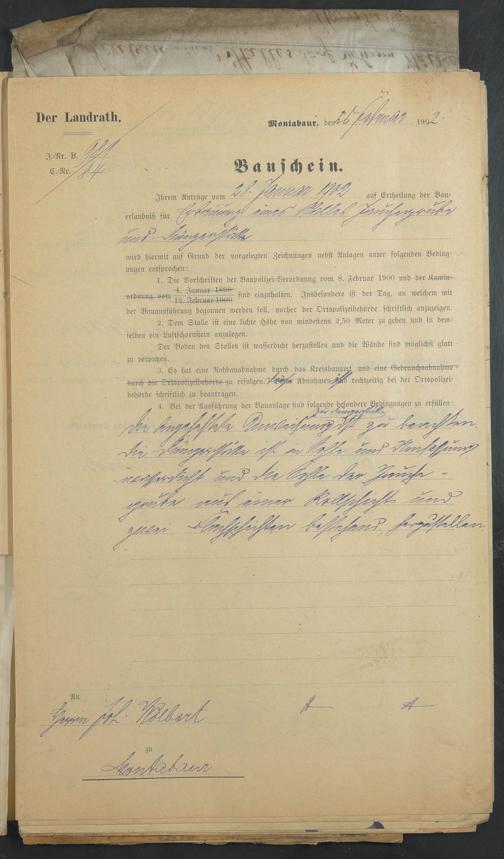 Der Landrath.
Montabaur, den 25 Februar 1902.
J.-Nr. B. 921
C.-Nr. /34
Bauschein.
Ihrem Antrage vom 28. Januar 1902 auf Ertheilung der Bau-
erlaubniß für Erbauung eines Stalles Jauchegrube
und Düngerstätte
wird hiermit auf Grund der vorgelegten Zeichnungen nebst Anlagen unter folgenden Beding-
ungen entsprochen:
1. Die Vorschriften der Baupolizei-Verordnung vom 8. Februar 1900 und der Kamin-
ordnung vom 4. Januar 1896 12. Februar 1900 sind einzuhalten. Insbesondere ist der Tag, an welchem mit
der Bauausführung begonnen werden soll, vorher der Ortspolizeibehörde schriftlich anzuzeigen.
2. Dem Stalle ist eine lichte Höhe von mindestens 2,50 Meter zu geben und in dem-
selben ein Luftschornstein anzulegen.
Der Boden des Stalles ist wasserdicht herzustellen und die Wände sind möglichst glatt
zu verputzen.
3. Es hat eine Rohbauabnahme durch das Kreisbauamt und eine Gebrauchsabnahme
durch die Ortspolizeibehörde zu erfolgen. Diese Abnahme ist rechtzeitig bei der Ortspolizei-
behörde schriftlich zu beantragen.
4. Bei der Ausführung der Bauanlage sind folgende besondere Bedingungen zu erfüllen:
zur Düngerstätte
Die angeheftete Anweisung ist zu beachten.
Die Düngerstätte ist in Sohle und Umfassung
wasserdicht und die Sohle der Jauche-
grube aus einer Rollschicht und
zwei Flachschichten bestehend herzustellen
An
Herrn Joh. Wilbert
zu
Montabaur